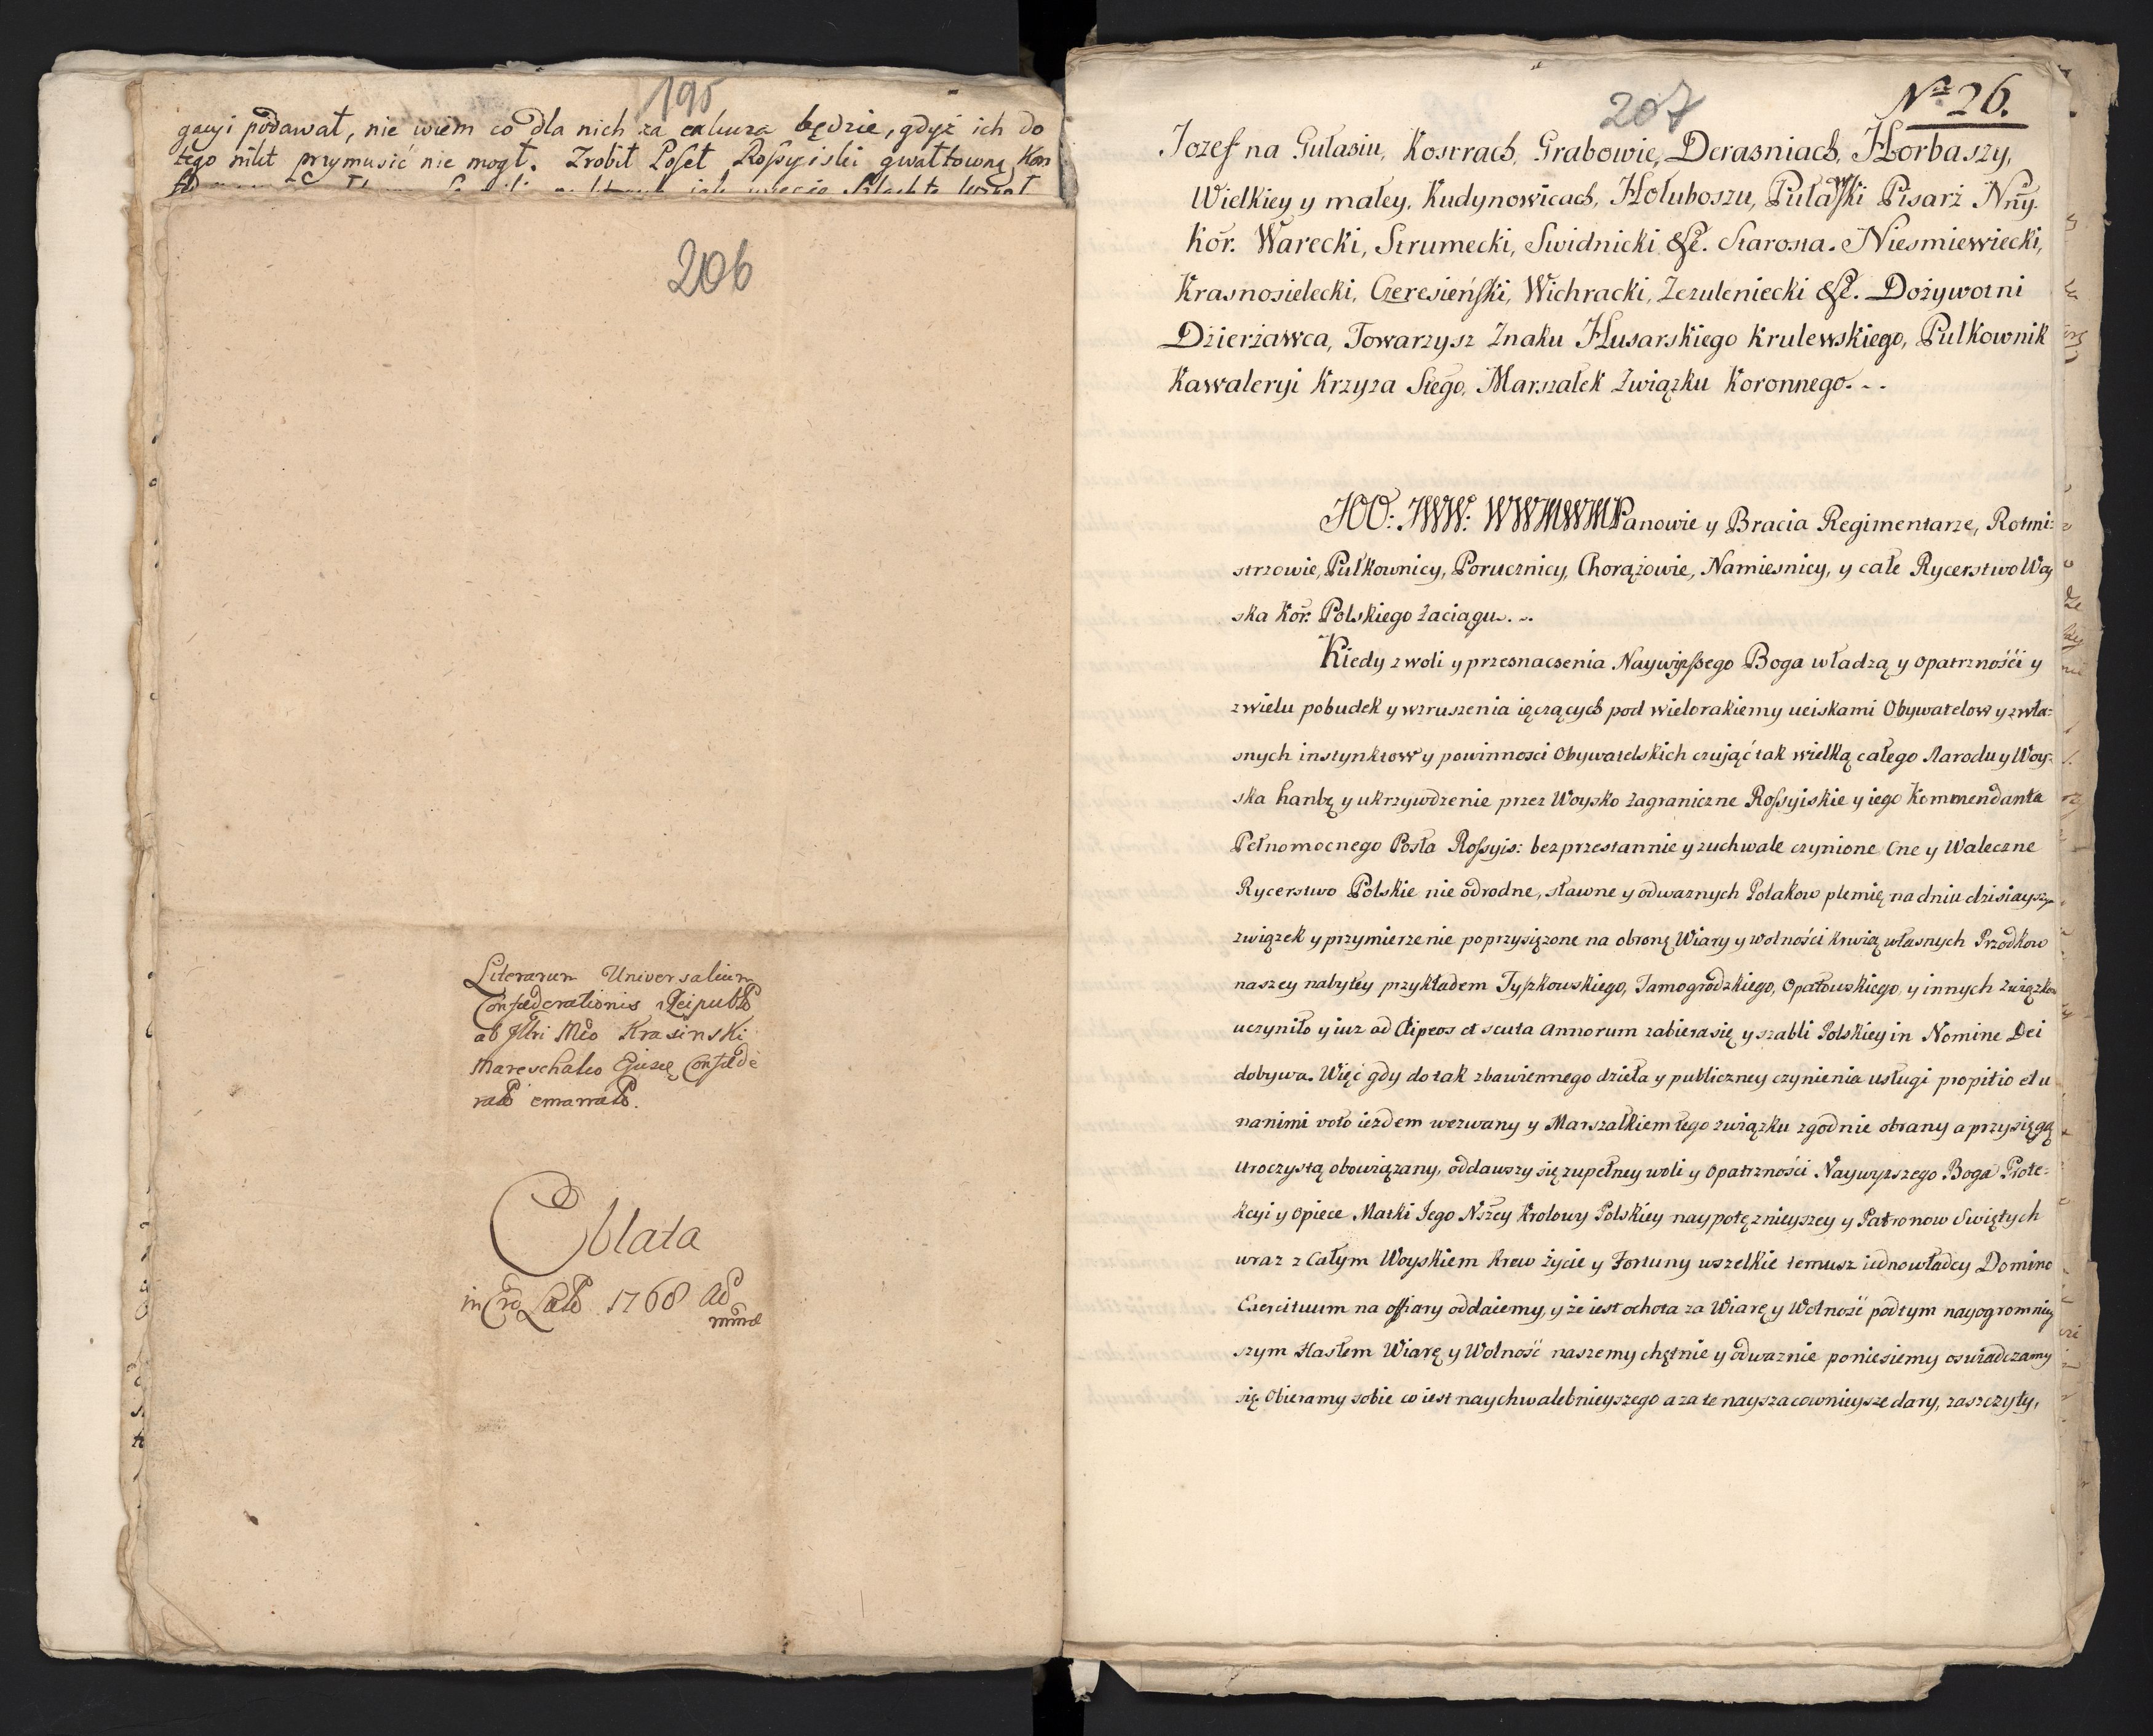 195
gacyi podawał, nie wiem co dla nich za  będzie, gdyż ich do
tego nikt przymusić nie mogł. Zrobił Poseł Rossyiski gwałtowną Kon
206
Literarum Universalium
Confæderationis Reipubl
ab Illri Mfco Krasinski
Mareschalco Ejusdę Confæde
Oblata
1768
207
No 26.
Jozef na Gułasiu, Kostrach, Grabowie, Derazniach, Horbaszy,
Wielkiey y małey, Kudynowicach, Hołuboszu, Puławski Pisarz Nny.
Kor. Warecki, Strumecki, Swidnicki &c. Starosta. Niesmiewiecki,
Krasnosielecki, Czeresieński, Wichracki, Zezuleniecki &c. Dożywotni
Dzierżawca, Towarzysz Znaku Husarskiego Krulewskiego, Pułkownik
Kawaleryi Krzyza Stego, Marszałek Związku Koronnego.
JOO: JWW: WWMWMPanowie y Bracia Regimentarze, Rotmi:
strzowie, Pułkownicy, Porucznicy, Chorążowie, Namiesnicy, y całe Rycerstwo Woy
ska Kor. Polskiego Zaciągu.
Kiedy z woli y przeznaczenia Naywyższego Boga władzą y opatrznośći y
z wielu pobudek y wzruszenia ięczących pod wielorakiemy uciskami Obywatelow y z wła:
snych instynktow y powinnosci Obywatelskich czująć tak wielką całego Narodu y Woy:
ska hanbę y ukrzywdzenie przez Woysko zagraniczne Rossyiskie y iego Kommendanta
Pełnomocnego Posła Rossyis: bezprzestannie y zuchwale czynione Cne y Waleczne
Rycerstwo Polskie nie odrodne, sławne y odwaznych Polakow plemię na dniu dzisiayszy
związek y przymierzenie poprzysiężone na obronę Wiary y wolności krwią własnych Przodkow
naszey nabytey przykładem Tyszkowskiego, Tarnogrodzkiego, Opatowskiego, y innych Związkow
uczyniło y iuz ad Clipeos et scuta Annorum zabiera się y szabli Polskiey in Nomine Dei
dobywa. Więć gdy do tak zbawiennego dzieła y publiczney czynienia usługi propitio et u
nanimi voto iezdem wezwany y Marszałkiem tego związku zgodnie obrany a przysięgą
uroczystą obowiązany, oddawszy się zupełney woli y Opatrzności Naywyzszego Boga Prote:
kcyi y opiece Matki Jego Nszey Krolowy Polskiey naypotęznieyszey y Patronow Swiętych
wraz z Całym Woyskiem Krew życie y Fortuny wszelkie temusz iednowładcy Domino
Exercituum na offiary oddaiemy, y że iest ochota za Wiarę y Wolność pod tym nayogromniey
szym Hasłem Wiarę y Wolność naszemy chętnie y odwaznie poniesiemy oswiadczamy
się. Obieramy sobie co iest naychwalebnieyszego a za te nayszacownieysze dary, zaszczyty,